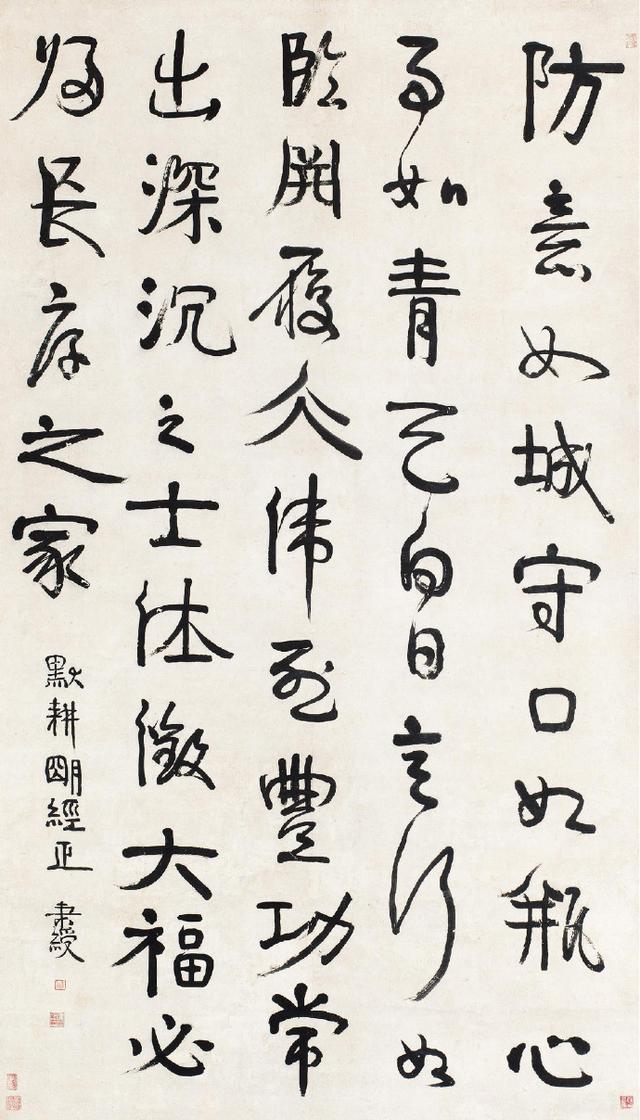 防意如城守口如瓶心
事如青天白日言行如
臨淵履仌偉烈豐功常
出深沉之士休徵大福必
歸長厚之家
默耕朙經正 秉綬